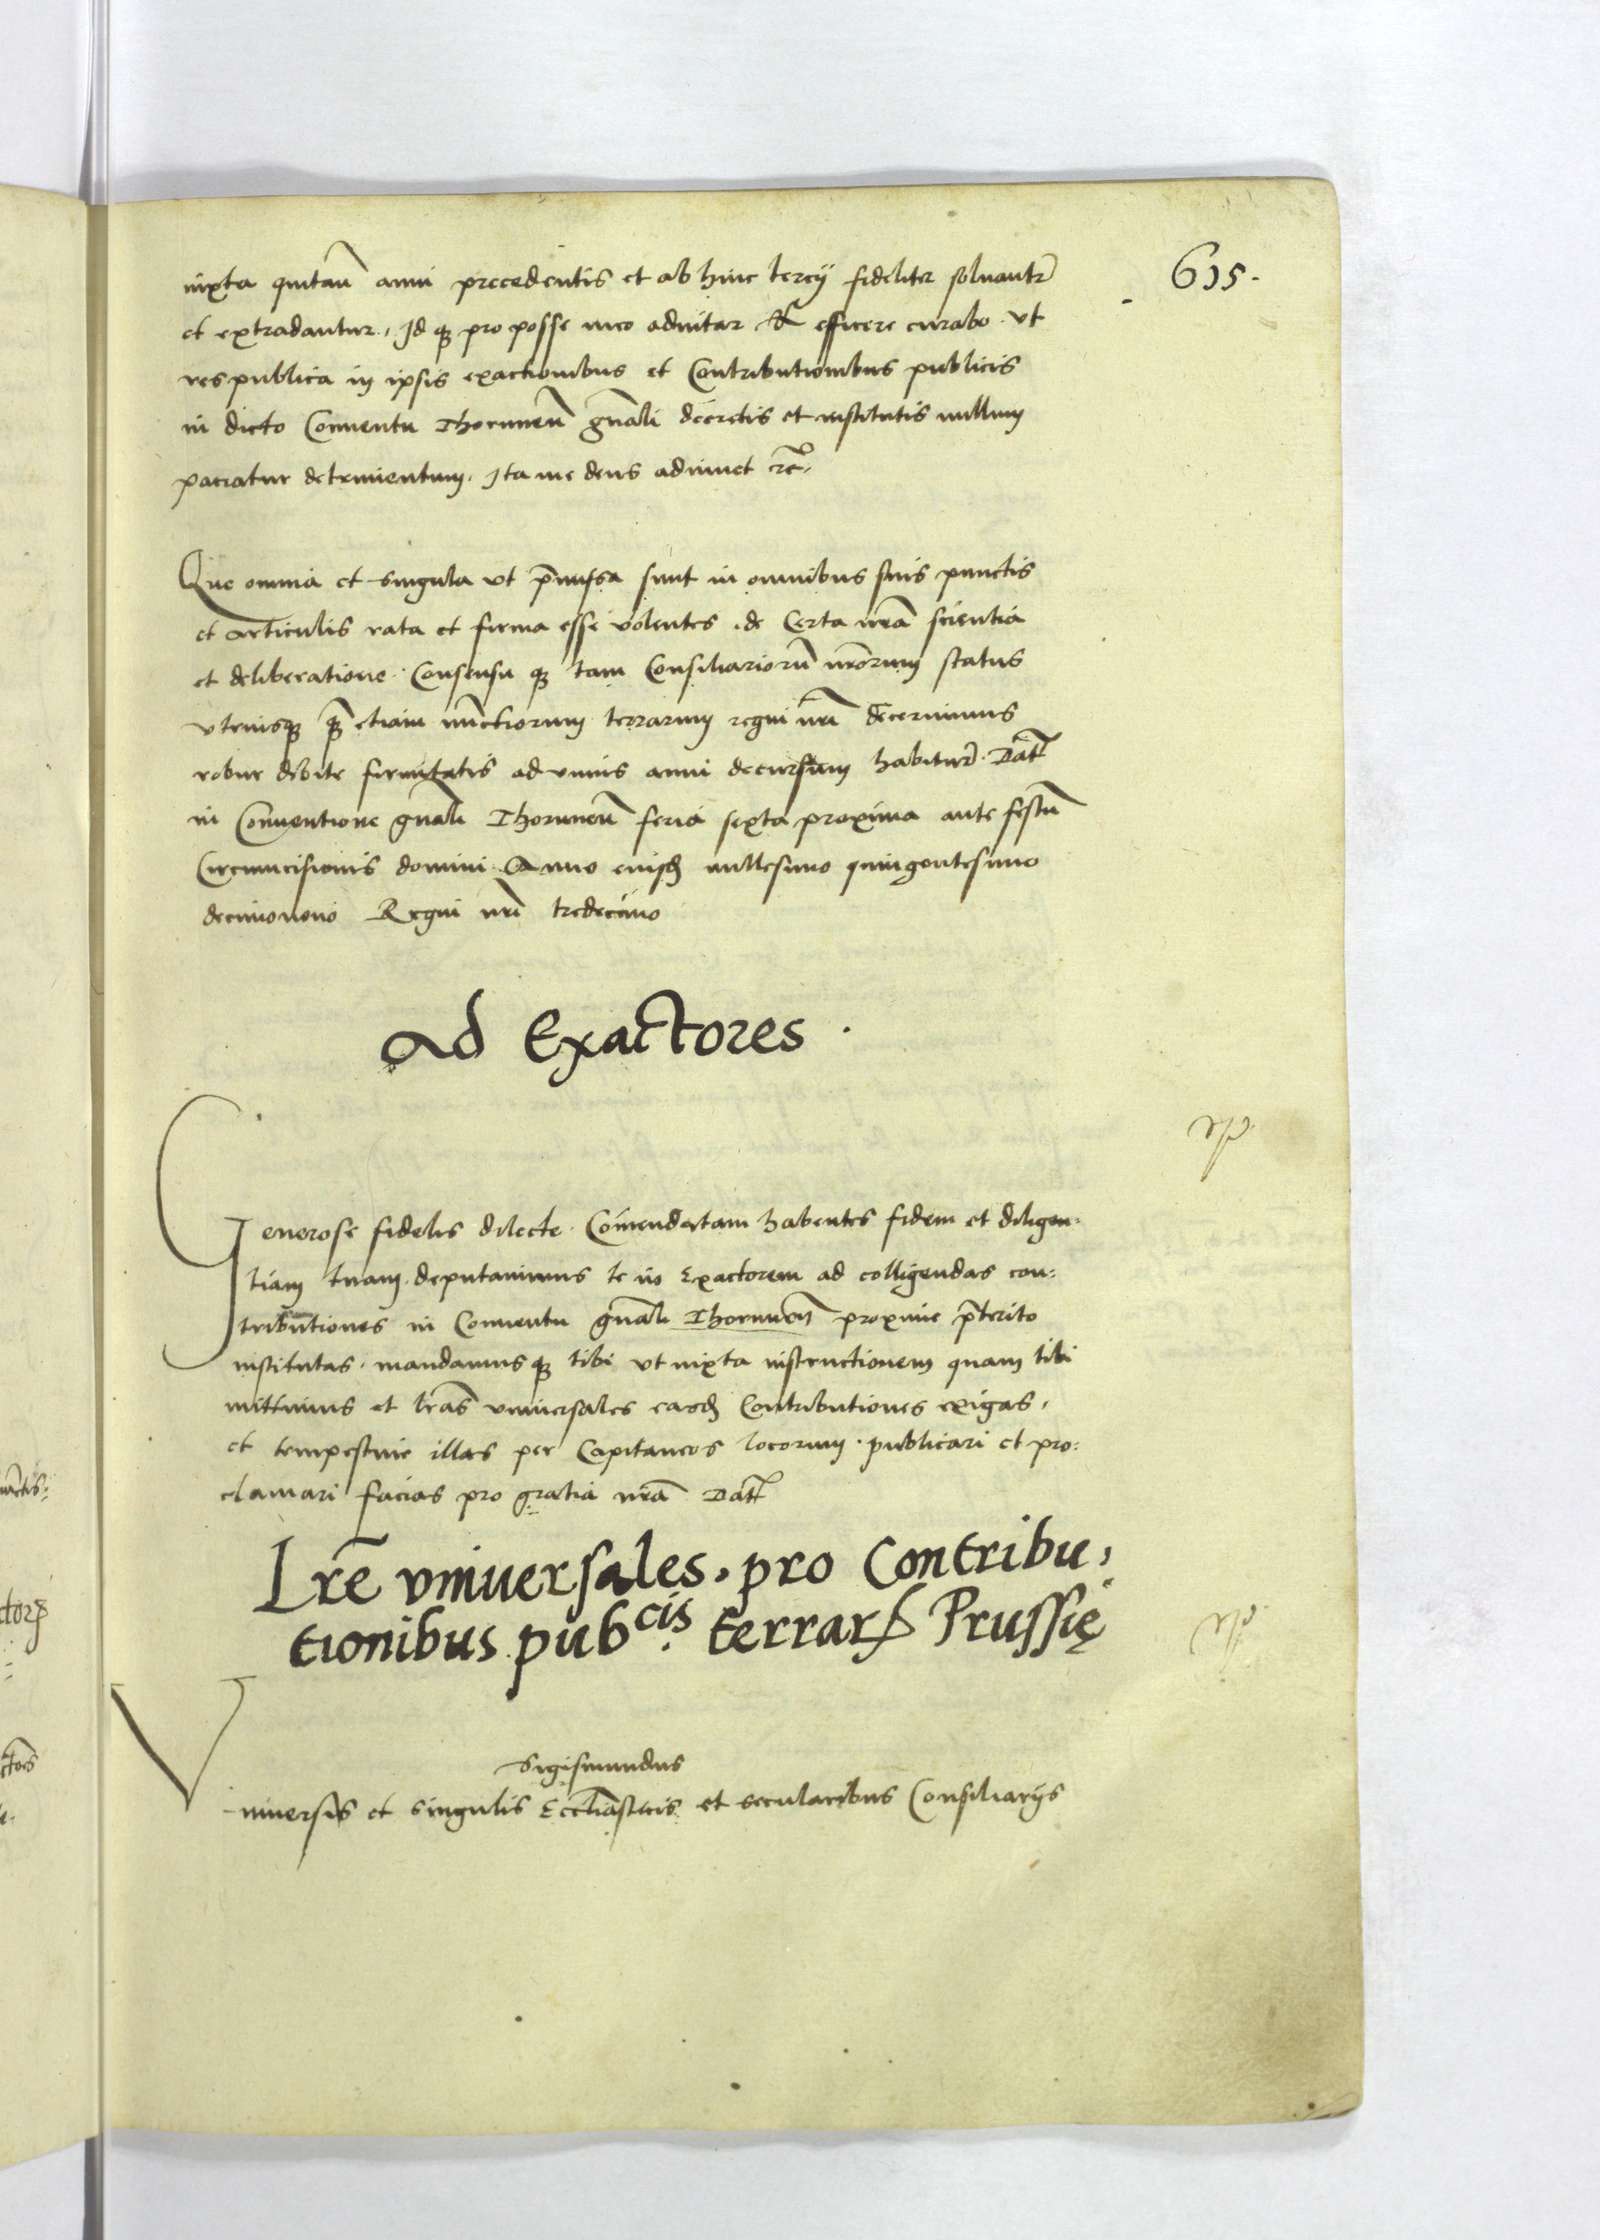 615.
iuxta quitan̄ anni precedentis et ab hinc tercij fideliter soluantr̄
et extradantur, Id q3 pro posse meo adnitar & efficere curabo vt
respublica in ipsis exactionibus et Contributionibus publicis
in dicto Conuentu Thorunen̄ gn̄ali decretis et institutis nullum
paciatur detrimentum, Ita me deus adiuuet rc̄.
Que omnia et singula vt p̄missa sunt in omnibus suis punctis
et articulis rata et firma esse volentes, de Certa nr̄a scientia
et deliberatione. Consensu q3 tam Consiliariorū nr̄orum status
vtriusq3 q̄3 etiam nūctiorum terrarum regni nr̄i decernimus
robur debite firmitatis ad vnius anni decursum habitur̄. Datī
in Conuentione gn̄ali Thorunen̄ feria sexta proxima ante festū
Circumcisionis domini Anno eiusd millesimo quingentesimo
decimonono Regni nr̄i tredecimo
Ad Exactores.
Generose fidelis dilecte. Comēndatam habentes fidem et diligen:
tiam tuam. deputauimus te in Exactorem ad colligendas con:
tributiones in Conuentu gn̄ali Thorunen̄ proxime p̄terito
institutas. mandamus q3 tibi vt iuxta instructionem quam tibi
mittimus et lr̄as vniuersales easd Contributiones exigas,
et tempestiue illas per Capitaneos locorum. publicari et pro:
clamari facias pro gratia nr̄a Datī
Lr̄e vniuersales. pro Contribu,
tionibus pubcis. terrarꝝ Prussię
Sigismundus
Vniuersis et singulis Eccl̄iasticis et secularibus Consiliarijs